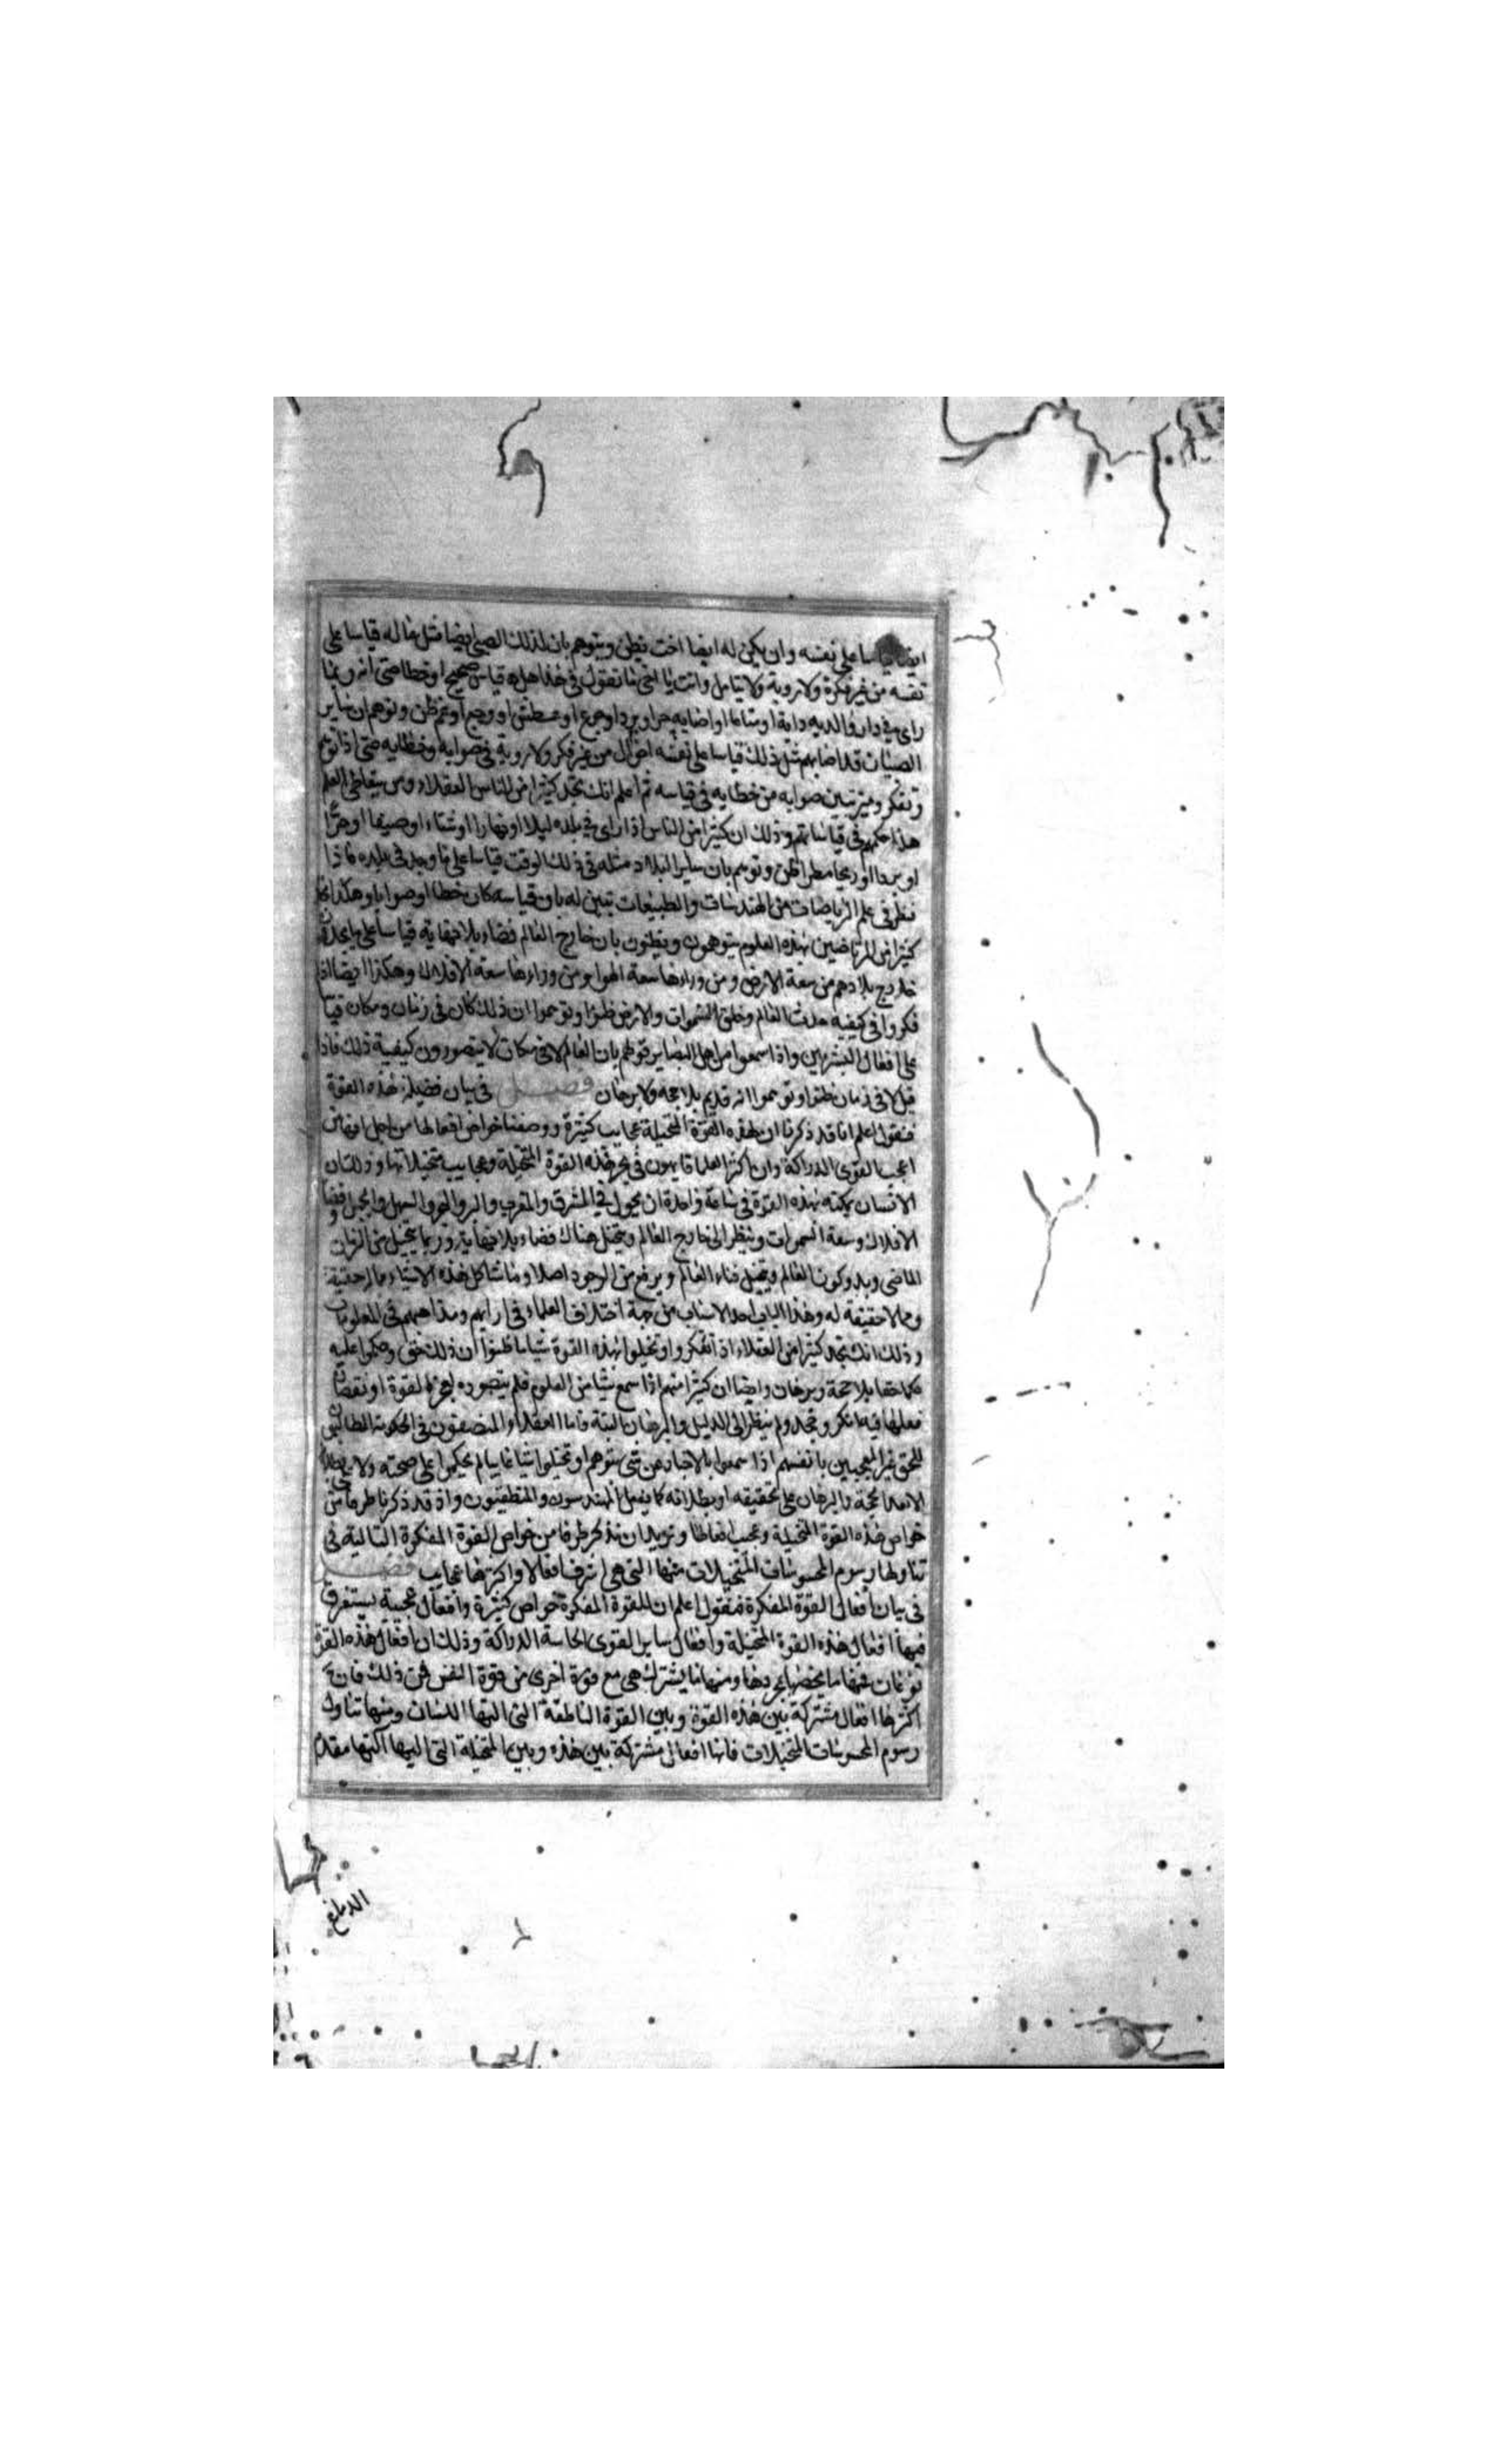 ايضا قياسا على نفسه وان يكن له ايضا اخت يظن ويتوهم بان لذلك الصبي ايضا مثل ماله قياسا على
نفسه من غير فكرة ولا روية ولا تامل وانت يا اخي ما تقول في هذا هل هو قياس صحيح او خطا حتى انه ربما
راى في دار والديه دابة او متاعا او اصابه حر او برد او جوع او عطش او وجع او غم ظن وتوهم ان ساير
الصبيان قد اصابهم مثل ذلك قياسا على نفسه من غير فكر ولا روية في صوابه وخطايه حتى اذا
وتفكر وميز تبين صوابه من خطايه في قياسه ثم اعلم انك تجد كثيرا من الناس العقلاء ومن يتعاطى العلم
هذا حكمهم في قياساتهم وذلك ان كثيرا من الناس اذا راى في بلده ليلا او نهارا او شتاء او صيفا او حرا
او بردا او ريحا او مطرا ظن وتوهم بان ساير البلاد مثله في ذلك الوقت قياسا على ما وجد في بلده فاذا
نظر في علم الرياضات من الهندسات والطبيعات تبين له بان قياسه كان خطا او صوابا وهكذا
كثيرا من المرتاضين بهذه العلوم يتوهمون ويظنون بان خارج العالم فضاء بلا نهاية قياسا على ما يجدون
خارج بلادهم من سعة الارض ومن وراءها سعة الهوا ومن وراءها سعة الافلاك وهكذا ايضا اذا
فكروا في كيفيه حدث العالم وخلق السموات والارض ظنوا وتوهموا ان ذلك كان في زمان ومكان قياسا
على افعال البشريين واذا سمعوا من اهل البصاير قولهم بان العالم لا في مكان لا يتصورون كيفية ذلك فاذا
قيل لا في زمان ظنوا وتوهموا انه قديم بلا حجه ولا برهان فصل في بيان فضيلة هذه القوة
فنقول اعلم انا قد ذكرنا ان لهذه القوة المتخيلة عجايب كثيرة ووصفنا خواص افعالها من اجل انها من
اعجب القوى الدراكة وان اكثر العلما تايهون في بحر هذه القوة المتخيلة وعجايب متخيلاتها وذلك ان
الانسان يمكنه بهذه القوة في ساعة واحدة ان يجول في المشرق والمغرب والبر والبحر والسهل والجبل وفضاء
الافلاك وسعة السموات وينظر الى خارج العالم ويتخيل هناك فضاء بلا نهاية وربما يتخيل من الزمان
الماضي وبدو كون العالم ويتخيل فناء العالم ويرفع من الوجود اصلا وما شاكل هذه الاشياء مما له حقيقة
ومما لا حقيقة له وهذا الباب احد الاسباب من جهة اختلاف العلماء في ارايهم ومذاهبهم في المعلومات
وذلك انك تجد كثيرا من العقلاء اذا تفكروا وتخيلوا بهذه القوة شيئا ما ظنوا ان ذلك حق وحكموا عليه
حكما حقا بلا حجة وبرهان وايضا ان كثيرا منهم اذا سمع شيئا من العلوم فلم يتصوره لعجز القوة او نقصان
فعلها فيه انكر وجحد ولم ينظر الى الدليل والبرهان البتة فاما العقلاء والمنصفون في الحكومة الطالبون
للحق غير المعجبين بانفسهم اذا سمعوا بالاخبار عن شي بتوهم او تخيلوا شيئا غايبا لم يحكموا على صحته ولا بطلانه
الا بعد الحجة والبرهان على تحقيقه او بطلانه كما يفعل المهندسون والمنطقيون واذ قد ذكرنا طرفا من
خواص هذه القوة المتخيلة وعجيب افعالها ونريد ان نذكر طرفا من خواص القوة المفكرة التالية في
تناولها رسوم المحسوسات المتخيلات منها التي هي اشرف افعالا واكثرها عجايب فصل
في بيان افعال القوة المفكرة فنقول اعلم ان للقوة المفكرة خواص كثيرة وافعال عجيبة يستغرق
فيها افعال هذه القوة المتخيلة وافعال ساير القوى الحاسة الدراكة وذلك ان افعال هذه القوة
نوعان فمنها ما يخصها بمجردها ومنها ما يشترك هي مع قوة اخرى من قوة النفس فمن ذلك فان
اكثرها افعال مشتركة بين هذه القوة وبين القوة الناطقة التي التها اللسان ومنها تناول
رسوم المحسوسات المتخيلات فانها افعال مشتركة بين هذه وبين المتخيلة التي اليها التها مقدم
الدماغ